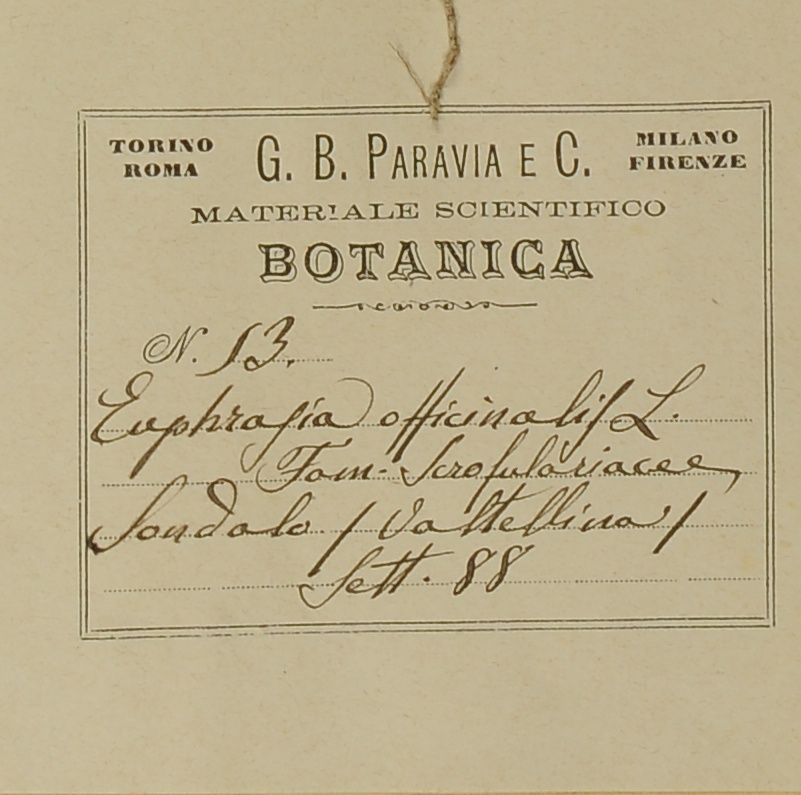 TORINO ROMA G. B. PARAVIA E C. MILANO FIRENZE
MATERIALE SCIENTIFICO
BOTANICA
N. 13.
Euphrasia officinalis L.
Fam. Scrofulariacee,
Sondalo (Valtellina)
Sett. 88